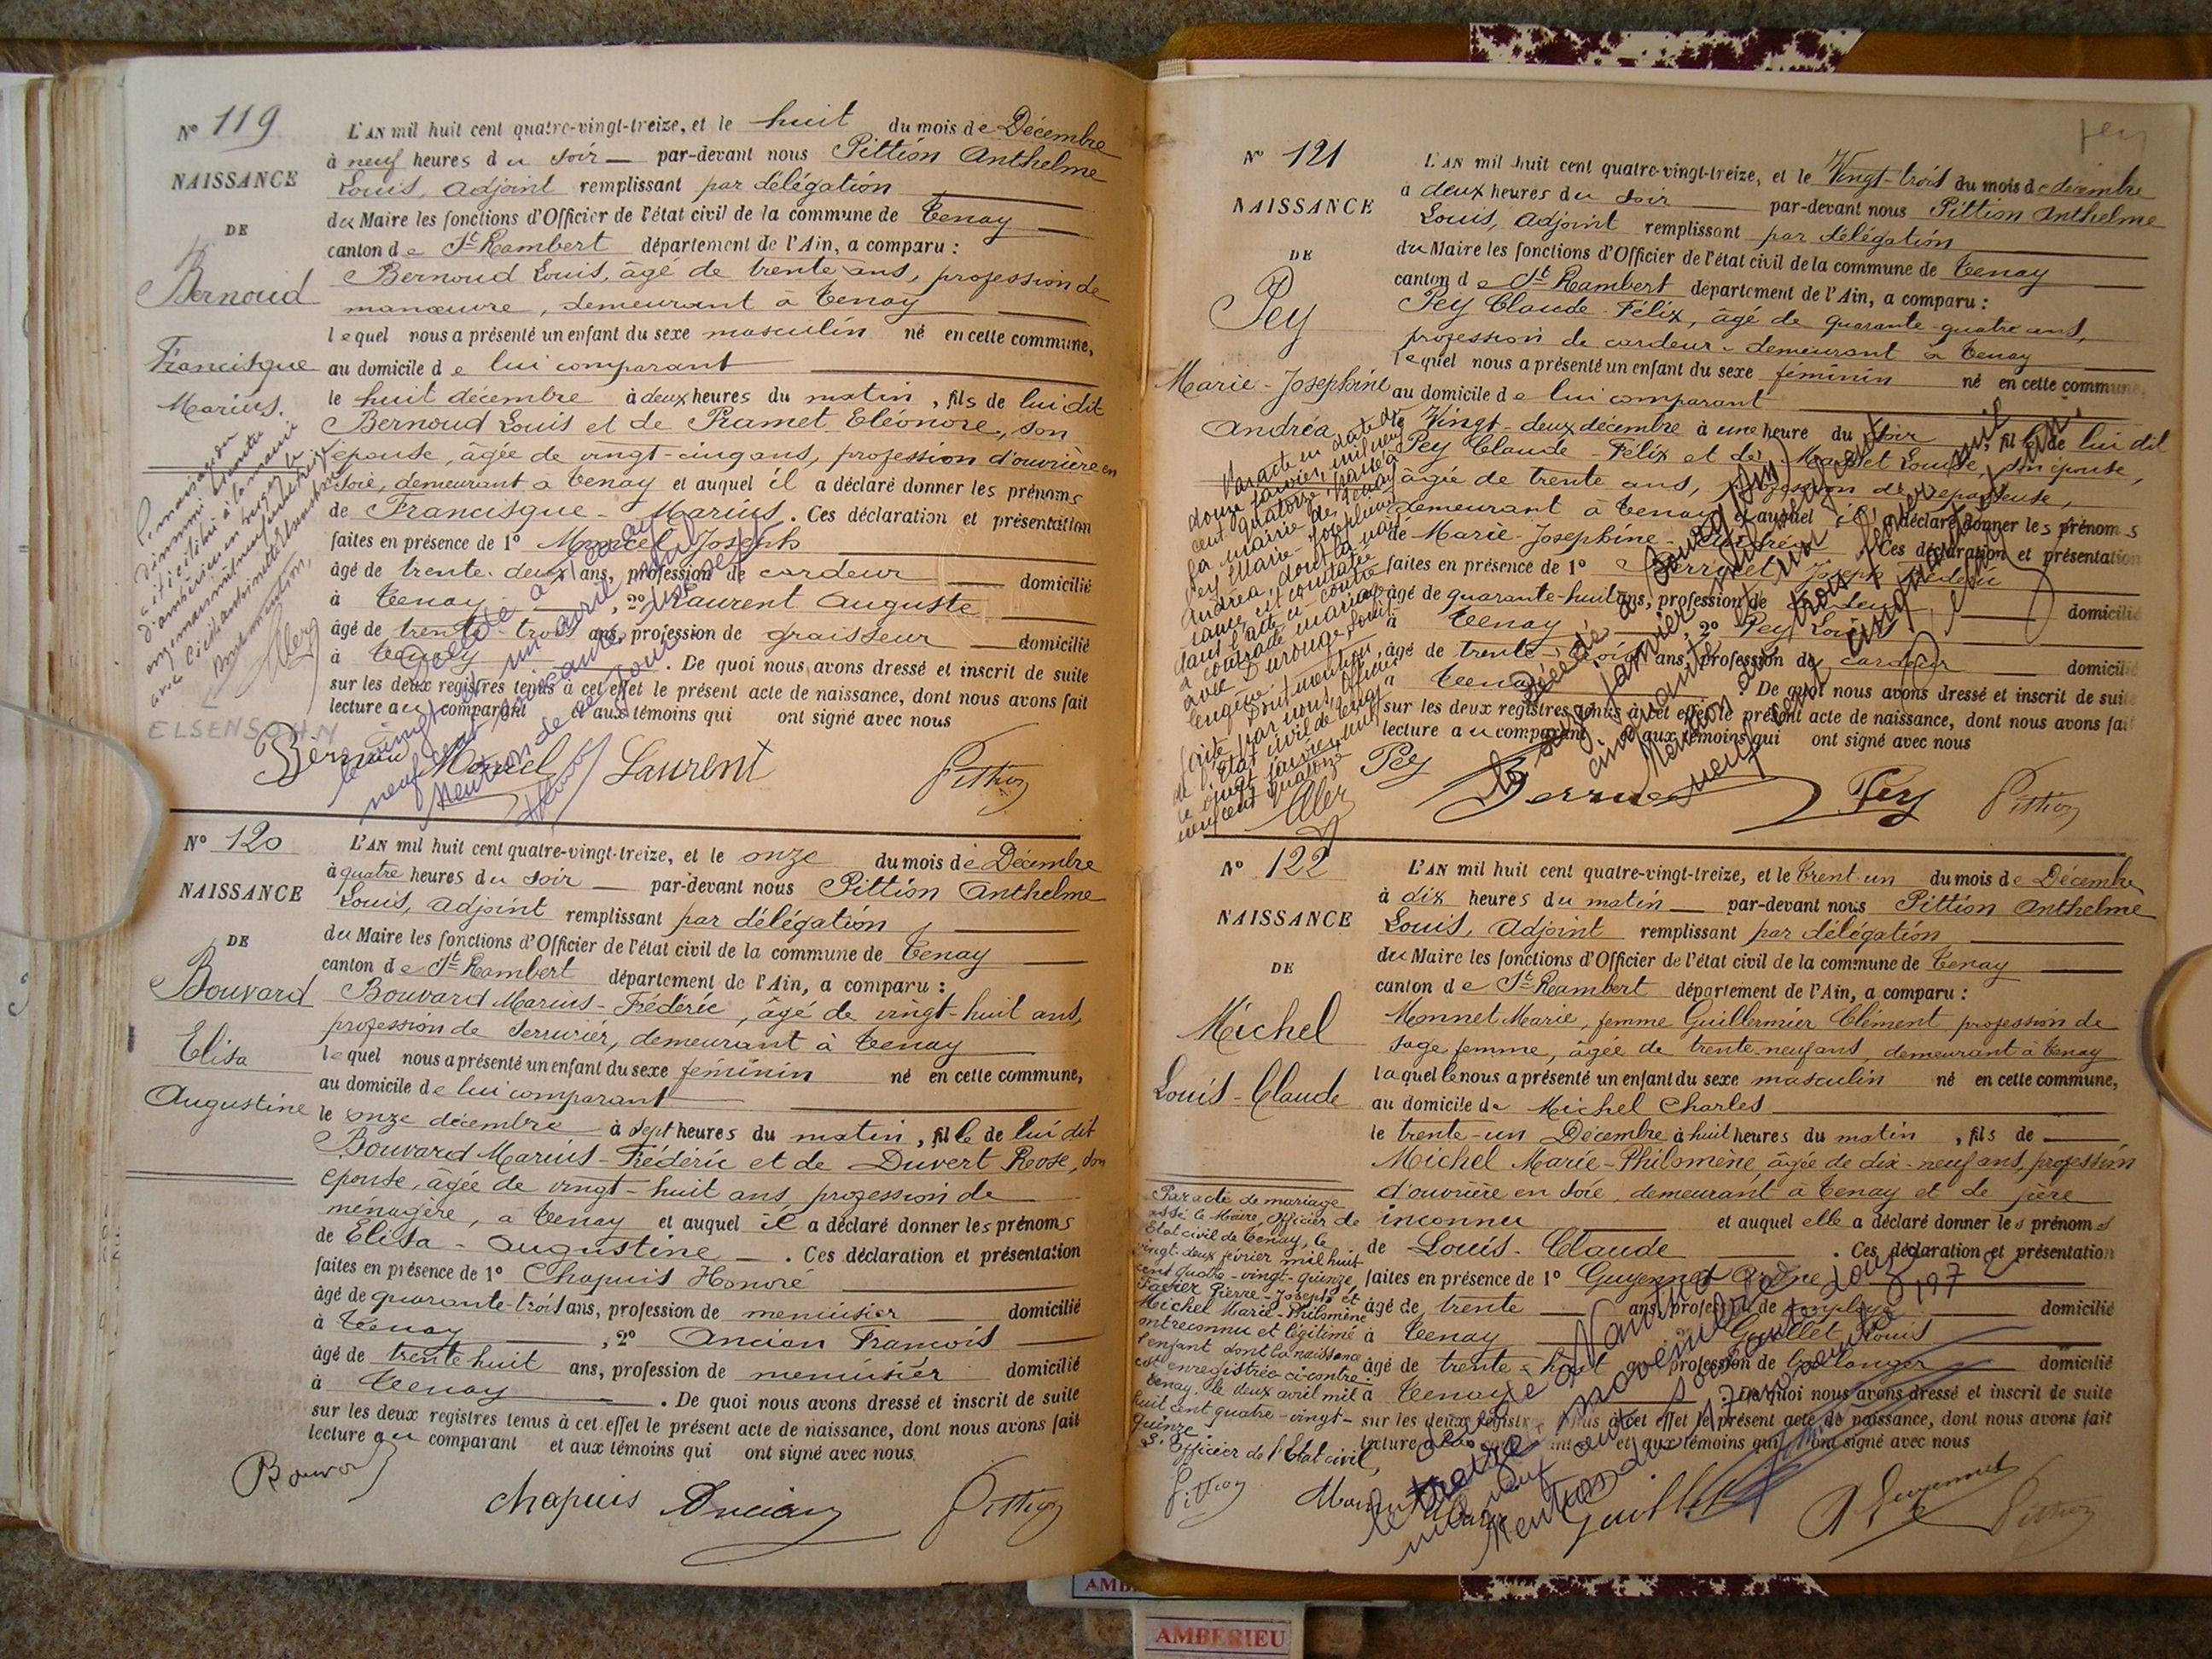 N° 119
NAISSANCE
DE
Bernoud
Francisque
Marius.
L'AN mil huit cent quatre-vingt-treize, et le huit du mois de Décembre
à neuf heures du soir par-devant nous Pittion Anthelme
Louis, adjoint remplissant par délégation
du Maire les fonctions d'Officier de l'état civil de la commune de Tenay
canton de St Rambert département de l'Ain, a comparu :
Bernoud Louis, âgé de trente ans, profession de
manœuvre, demeurant à Tenay
lequel nous a présenté un enfant du sexe masculin né en cette commune,
au domicile de lui comparant
le huit décembre à deux heures du matin, fils de lui dit
Bernoud Louis et de Ramet Eléonore, son
épouse, âgée de vingt-cinq ans, profession d'ouvrière en
soie, demeurant à Tenay et auquel il a déclaré donner les prénoms
de Francisque-Marius. Ces déclaration et présentation
faites en présence de 1° Marcel Joseph
âgé de trente-deux ans, profession de cardeur domicilié
à Tenay, 2° Laurent Auguste
âgé de trente-trois ans, profession de graisseur domicilié
à Tenay. De quoi nous avons dressé et inscrit de suite
sur les deux registres tenus à cet effet le présent acte de naissance, dont nous avons fait
lecture au comparant et aux témoins qui ont signé avec nous
ELSENSOHN
Marcel Laurent Pittion
N° 120
NAISSANCE
DE
Bouvard
Elisa
Augustine
L'AN mil huit cent quatre-vingt-treize, et le onze du mois de Décembre
à quatre heures du soir par-devant nous Pittion Anthelme
Louis, adjoint remplissant par délégation
du Maire les fonctions d'Officier de l'état civil de la commune de Tenay
canton de St Rambert département de l'Ain, a comparu :
Bouvard Marius-Frédéric, âgé de vingt-huit ans,
profession de serrurier, demeurant à Tenay
lequel nous a présenté un enfant du sexe féminin né en cette commune,
au domicile de lui comparant
le onze décembre à sept heures du matin, fille de lui dit
Bouvard Marius-Frédéric et de Duvert Rose, son
épouse, âgée de vingt-huit ans, profession de
ménagère, à Tenay et auquel il a déclaré donner les prénoms
de Elisa-Augustine. Ces déclaration et présentation
faites en présence de 1° Chapuis Honoré
âgé de quarante-trois ans, profession de menuisier domicilié
à Tenay, 2° Ancian François
âgé de trente huit ans, profession de menuisier domicilié
à Tenay. De quoi nous avons dressé et inscrit de suite
sur les deux registres tenus à cet effet le présent acte de naissance, dont nous avons fait
lecture au comparant et aux témoins qui ont signé avec nous
Bouvard chapuis Ancian Pittion
Pey
N° 121
NAISSANCE
DE
Pey
Marie-Joséphine
Andréa
L'AN mil huit cent quatre-vingt-treize, et le Vingt-trois du mois de décembre
à deux heures du soir par-devant nous Pittion Anthelme
Louis, adjoint remplissant par délégation
du Maire les fonctions d'Officier de l'état civil de la commune de Tenay
canton de St Rambert département de l'Ain, a comparu :
Pey Claude-Félix, âgé de quarante-quatre ans,
profession de cardeur, demeurant à Tenay
lequel nous a présenté un enfant du sexe féminin né en cette commune,
au domicile de lui comparant
Vingt-deux décembre à une heure du soir, fille de lui dit
Pey Claude-Félix et de Louise, son épouse,
âgée de trente ans, profession de repasseuse,
demeurant à Tenay et auquel il a déclaré donner les prénoms
de Marie-Joséphine-Andréa. Ces déclaration et présentation
faites en présence de 1° Joseph
âgé de quarante-huit ans, profession de domicilié
à Tenay, 2° Pey Louis
âgé de trente-trois ans, profession de cardeur domicilié
à Tenay. De quoi nous avons dressé et inscrit de suite
sur les deux registres tenus à cet effet le présent acte de naissance, dont nous avons fait
lecture au comparant et aux témoins qui ont signé avec nous
Pey Pey Pittion
N° 122
NAISSANCE
DE
Michel
Louis-Claude
L'AN mil huit cent quatre-vingt-treize, et le trent-un du mois de Décembre
à dix heures du matin par-devant nous Pittion Anthelme
Louis, adjoint remplissant par délégation
du Maire les fonctions d'Officier de l'état civil de la commune de Tenay
canton de St Rambert département de l'Ain, a comparu :
Monnet Marie, femme Guillermier Clément profession de
sage femme, âgée de trente-neuf ans, demeurant à Tenay
laquelle nous a présenté un enfant du sexe masculin né en cette commune,
au domicile de Michel Charles
le trente-un Décembre à huit heures du matin, fils de
Michel Marie-Philomène, âgée de dix-neuf ans, profession
d'ouvrière en soie, demeurant à Tenay et de père
inconnu et auquel elle a déclaré donner les prénoms
de Louis-Claude. Ces déclaration et présentation
faites en présence de 1° Guyennet
âgé de trente ans, profession de employé domicilié
à Tenay Guillet Louis
âgé de trente-huit profession de boulanger domicilié
à Tenay. De quoi nous avons dressé et inscrit de suite
sur les deux registres tenus à cet effet le présent acte de naissance, dont nous avons fait
lecture et aux témoins qui ont signé avec nous
Par acte de mariage
le Maire, Officier de
Etat civil de Tenay, le
vingt-deux février mil huit
cent quatre-vingt-quinze,
Favier Pierre-Joseph et
Michel Marie-Philomène
ont reconnu et légitimé
l'enfant dont la naissance
est enregistrée ci-contre.
Tenay, le deux avril mil
huit cent quatre-vingt-
quinze.
L'Officier de l'Etat civil,
Pittion
Guillet Guyennet Pittion
AMBERIEU